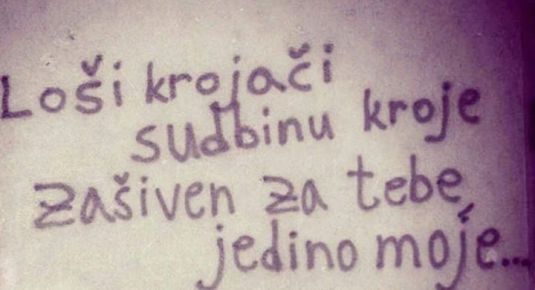 Loši krojači
sudbinu kroje
zašiven za tebe,
jedino moje...